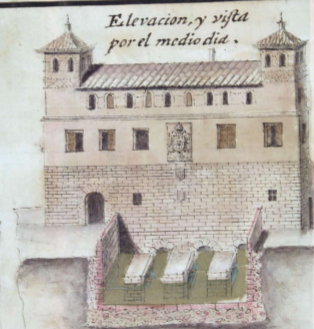 Elevacion, y vista
por el mediodia.